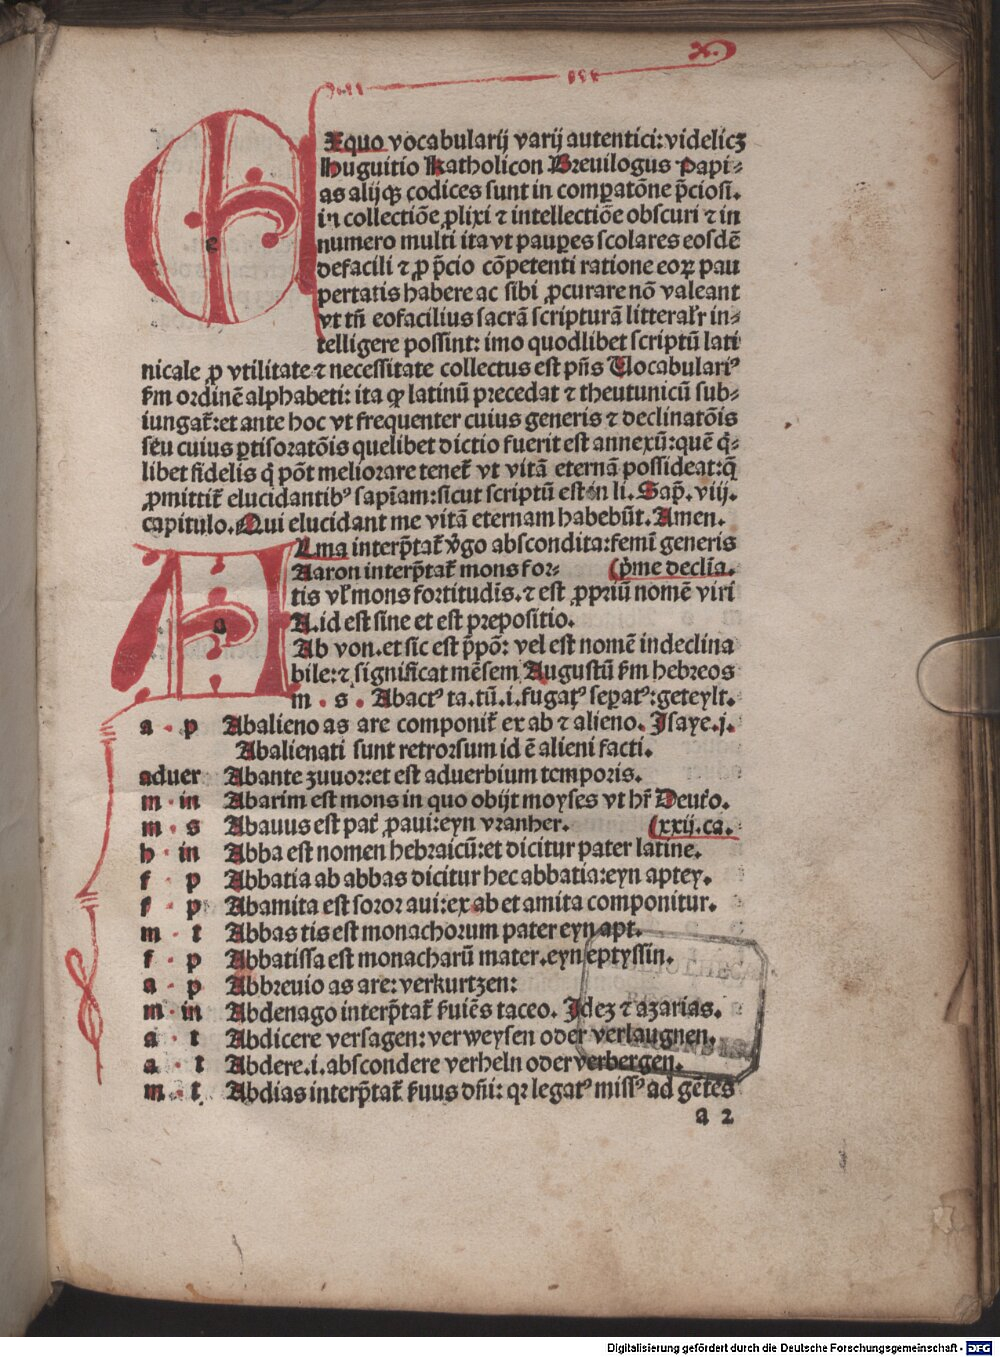 Exquo vocabularij varij autentici: videlicꝫ
Huguitio Katholicon Breuilogus Papi⸗
as alijqꝫ codices sunt in comꝑatōne p̄ciosi.
in collectiōe ꝓlixi ⁊ intellectiōe obscuri ⁊ in
numero multi ita vt pauꝑes scolares eosdē
defacili ⁊ ꝓ p̄cio cōpetenti ratione eoꝝ pau
pertatis habere ac sibi ꝓcurare nō valeant
vt tn̄ eofacilius sacrā scripturā litteral'r in⸗
telligere possint: imo quodlibet scriptū lati
nicale ꝓ vtilitate ⁊ necessitate collectus est pn̄s Vocabulariꝰ
ẜm ordinē alphabeti: ita ꝙ latinū precedat ⁊ theutunicū sub⸗
iungat̄: et ante hoc vt frequenter cuius generis ⁊ declinatōis
seu cuius ꝑtisoratōis quelibet dictio fuerit est annexū: quē q̇⸗
libet fidelis q̇ pōt meliorare tenet̄ vt vitā eternā possideat: q̄
ꝓmittit̄ elucidantibꝰ sapīam: sicut scriptū est in li. Sap̄. viij.
capitulo. Qui elucidant me vitā eternam habebūt. Amen.
ALma interp̄tat̄ v̊go abscondita: femī generis
Aaron interp̄tat̄ mons for⸗ (p̄me declīa.
tis vl' mons fortitudīs. ⁊ est ꝓpriū nomē viri
A. id est sine et est prepositio.
Ab von. et sic est p̄pō: vel est nomē indeclina
bile: ⁊ significat mēsem Augustū ẜm hebreos
m . s . Abactꝰ ta. tū. i. fugatꝰ seꝑatꝰ: geteylt.
a . p Abalieno as are componit̄ ex ab ⁊ alieno. Isaye. j.
Abalienati sunt retrorsum id ē alieni facti.
aduer Abante zuuor: et est aduerbium temporis.
m . in Abarim est mons in quo obijt moyses vt hr̄ Deut̊o.
m . s Abauus est pat̄ ꝓaui: eyn vranher. (xxij. ca.
h . in Abba est nomen hebraicū: et dicitur pater latine.
f . p Abbatia ab abbas dicitur hec abbatia: eyn aptey.
f . p Abamita est soror aui: ex ab et amita componitur.
m . t Abbas tis est monachorum pater eyn apt.
f . p Abbatissa est monacharū mater. eyn eptyssin.
a . p Abbreuio as are: verkurtzen:
m . in Abdenago interp̄tat̄ ẜuiēs taceo. Idez ⁊ azarias.
a . t Abdicere versagen: verweysen oder verlaugnen.
a . t Abdere. i. abscondere verheln oder verbergen.
m . t Abdias interp̄tat̄ ẜuus dn̄i: qꝛ legatꝰ missꝰ ad gētes
a 2
Digitalisierung gefördert durch die Deutsche Forschungsgemeinschaft - DFG